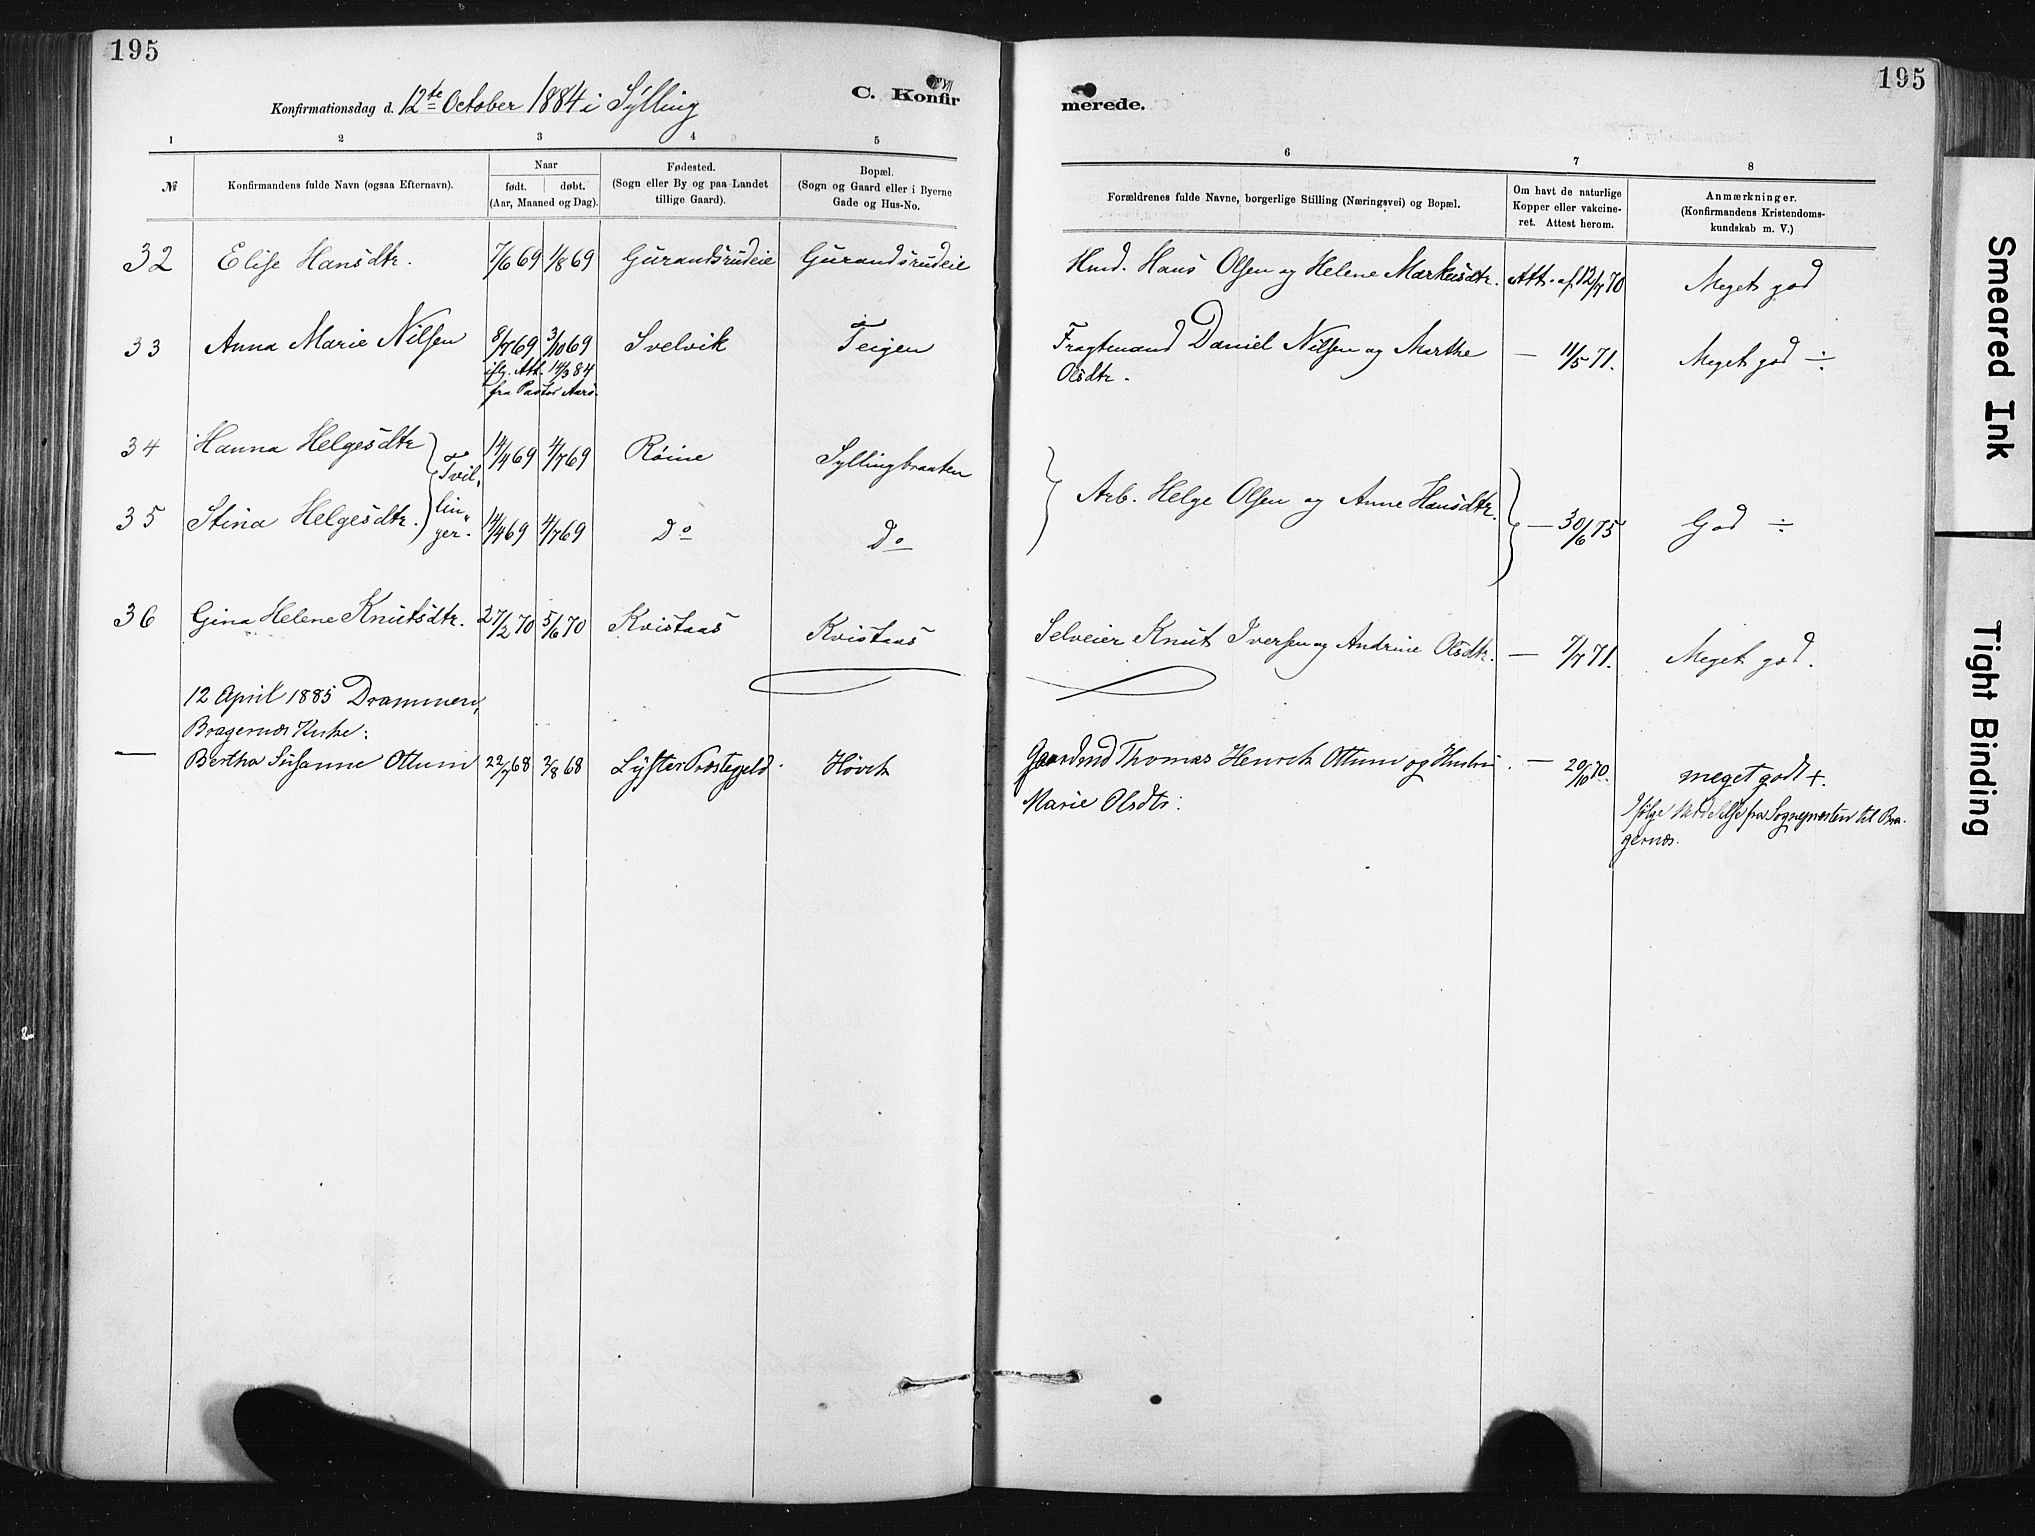 195
195
Konfirmationsdag d. 12te October 1884 i Sylling
C. Konfir
merede.
1 2 3 4 5 6 7 8
№
Konfirmandens fulde Navn (ogsaa Efternavn).
Naar
født. døbt.
(Aar, Maaned og Dag).
Fødested.
(Sogn eller By og paa Landet
tillige Gaard).
Bopæl.
(Sogn og Gaard eller i Byerne
Gade og Hus-No.
Forældrenes fulde Navne, borgerlige Stilling (Næringsvei) og Bopæl.
Om havt de naturlige
Kopper eller vakcine-
ret. Attest herom.
Anmærkninger.
(Konfirmandens Kristendoms-
kundskab m. V.)
32 Elise Hansdtr. 7/6 69 1/8 69 Gurandsrudeie Gurandsrudeie Hmd. Hans Olsen og Helene Markusdtr. Att. af 12/7 70 Meget god
33 Anna Marie Nilsen 8/7 69 3/10 69 Svelvik Teigen Fragtmand Daniel Nilsen og Marthe — 11/5 71. Meget god ÷
ifg. Att. 14/3 84 Olsdtr.
fra Pastor Aars.
34 Hanna Helgesdtr 14/4 69 4/7 69 Røine Syllingbraaten
Tvil-
Arb. Helge Olsen og Anne Hansdtr. — 30/6 75 God ÷
35 Stina Helgesdtr. lin-
ger. 14/4 69 4/7 69 Do Do
36 Gina Helene Knutsdtr. 27/2 70 5/6 70 Kvistaas Kvistaas Selveier Knut Iversen og Andrine Olsdtr. — 7/7 71. Meget god.
12 April 1885 Drammen,
Bragernæs Kirke:
— Bertha Susanne Ottum 22/7 68 2/8 68 Lyster Præstegjeld Hørck Gaardmd Thomas Henrik Ottum og Hustru — 20/10 70. meget godt +.
Marie Olsdtr.
Ifølge Meddelelse fra Sognepræsten til Bra-
gernæs.
Smeared Ink
Tight Binding